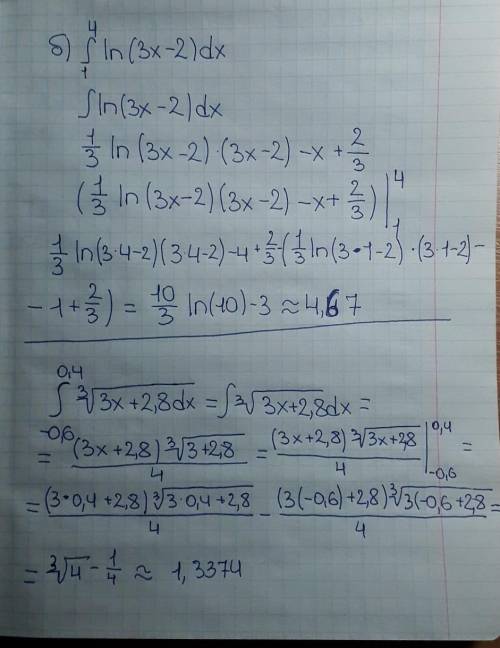 б) ∫₁⁴ ln(3x-2)dx
∫ln(3x-2)dx
1/3 ln(3x-2)·(3x-2)-x+2/3
(1/3 ln(3x-2)(3x-2)-x+2/3)|₁⁴
1/3 ln(3·4-2)(3·4-2)-4+2/3-(1/3 ln(3·1-2)·(3·1-2)-
-1+2/3) = 10/3 ln(10)-3 ≈ 4,67
∫₋₀,₆⁰,⁴ ∛(3x+2,8dx) = ∫∛(3x+2,8)dx =
= (3x+2,8)∛(3+2,8)/4 = (3x+2,8)∛(3x+2,8)/4 |₋₀,₆⁰,⁴ =
= (3·0,4+2,8)∛(3·0,4+2,8)/4 - (3(-0,6)+2,8)∛(3(-0,6+2,8)/4 =
= ∛4 - 1/4 ≈ 1,3374